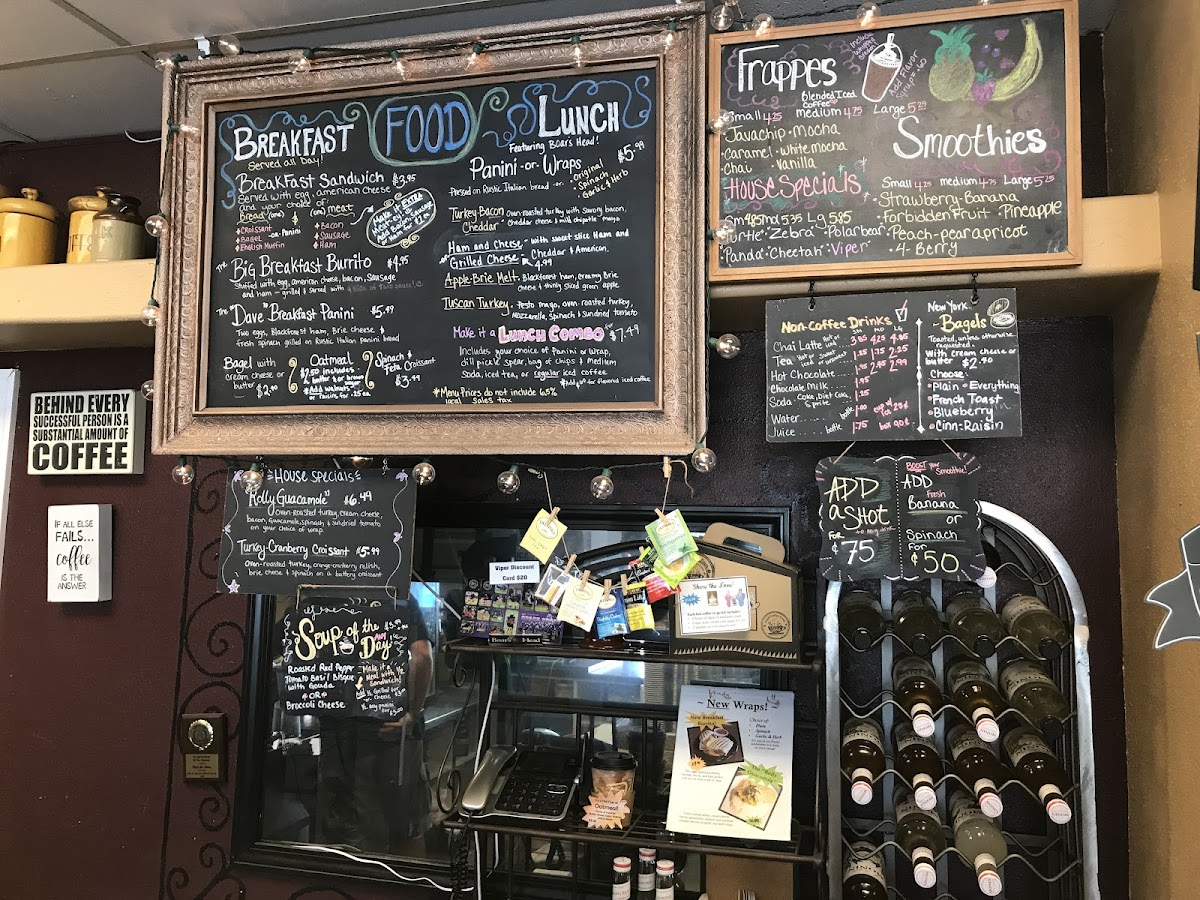 BREAKFAST
Served all Day!
FOOD
LUNCH
Featuring Boar's Head!
Breakfast Sandwich $3.95
Served with egg, american cheese
and your choice of:
Bread (one) (one) meat
Croissant
Bagel -or- Panini
English Muffin
Bacon
Sausage
Ham
Make it EXTRA
Meat-ey!
Add Bacon, Sausage
or Ham for $2.00
The Big Breakfast Burrito $4.95
Stuffed with egg, american cheese, bacon, Sausage
and ham - grilled & served with
The "Dave" Breakfast Panini $5.49
Two eggs, Blackforest ham, Brie cheese &
fresh spinach grilled on Rustic Italian panini bread
Bagel with
cream cheese or
butter $2.90
Oatmeal
$2.50 includes
butter & or brown
Add walnuts
or raisins for .25 ea.
Spinach &
Feta Croissant
$3.49
Panini -or- Wraps $5.99
Pressed on Rustic Italian bread -or-
Original
Spinach
Garlic & Herb
Turkey-Bacon Cheddar
oven roasted turkey with savory bacon,
cheddar cheese & mild chipotle mayo
Ham and Cheese - with sweet slice Ham and
Grilled Cheese Cheddar & American.
4.99
Apple-Brie Melt. Blackforest ham, creamy Brie
cheese & thinly sliced green apple
Tuscan Turkey. Pesto mayo, oven roasted turkey,
Mozzarella, Spinach & Sundried tomato
Make it a LUNCH COMBO for $7.49
Includes your choice of Panini or Wrap,
dill pickle spear, bag of chips & medium
Soda, iced tea, or regular iced coffee
*Menu Prices do not include 6.5%
local sales tax
Frappes
Blended Iced
Coffee
Includes
whipped
cream!
Add Flavor
Syrup= .60
Small 4.25 medium 4.75 Large 5.25
Javachip • Mocha
Caramel • White mocha
Chai • Vanilla
House Specials
Sm 4.85 md 5.35 Lg 5.85
Turtle • Zebra • Polar bear
Panda • Cheetah • Viper
Smoothies
Small 4.25 medium 4.75 Large 5.25
• Strawberry-Banana
• Forbidden Fruit • Pineapple
• Peach-pear apricot
• 4-Berry
Non-Coffee Drinks
SM MD LG
Chai Latte Hot or iced 3.85 4.25 4.85
Tea Hot or iced 1.75 2.25
Hot Chocolate 1.95 2.45 2.99
Chocolate Milk 1.95
Soda-Coke, Diet Coke, Sprite
Water bottle 1.00
Juice bottle 1.75
New York
~Bagels
Toasted, unless otherwise
requested.
With cream cheese or
butter $2.90
Choose:
• Plain • Everything
• French Toast
• Blueberry
• Cinn-Raisin
BEHIND EVERY
SUCCESSFUL PERSON IS A
SUBSTANTIAL AMOUNT OF
COFFEE
IF ALL ELSE
FAILS...
coffee
IS THE
ANSWER
House Specials
"Holly Guacamole" $6.49
oven-roasted turkey, cream cheese,
bacon, Guacamole, spinach & sundried tomato
on your choice of wrap.
Turkey-Cranberry Croissant $5.99
Oven-roasted turkey, orange-cranberry relish,
brie cheese & spinach on a buttery croissant
Soup of the
Day
Roasted Red Pepper
Tomato Basil Bisque
with Gouda
OR
Broccoli Cheese
Make it a
Meal with ½
Sandwich!
ADD
a SHOT
to any drink
FOR
¢75
BOOST your Smoothie!
ADD
fresh
Banana
or
Spinach
FOR
¢50
Viper Discount
Card $20
Share the Love!
~ New Wraps! ~
New Breakfast
Burrito!
Choice of:
Plain
Spinach
Garlic & Herb
Oatmeal